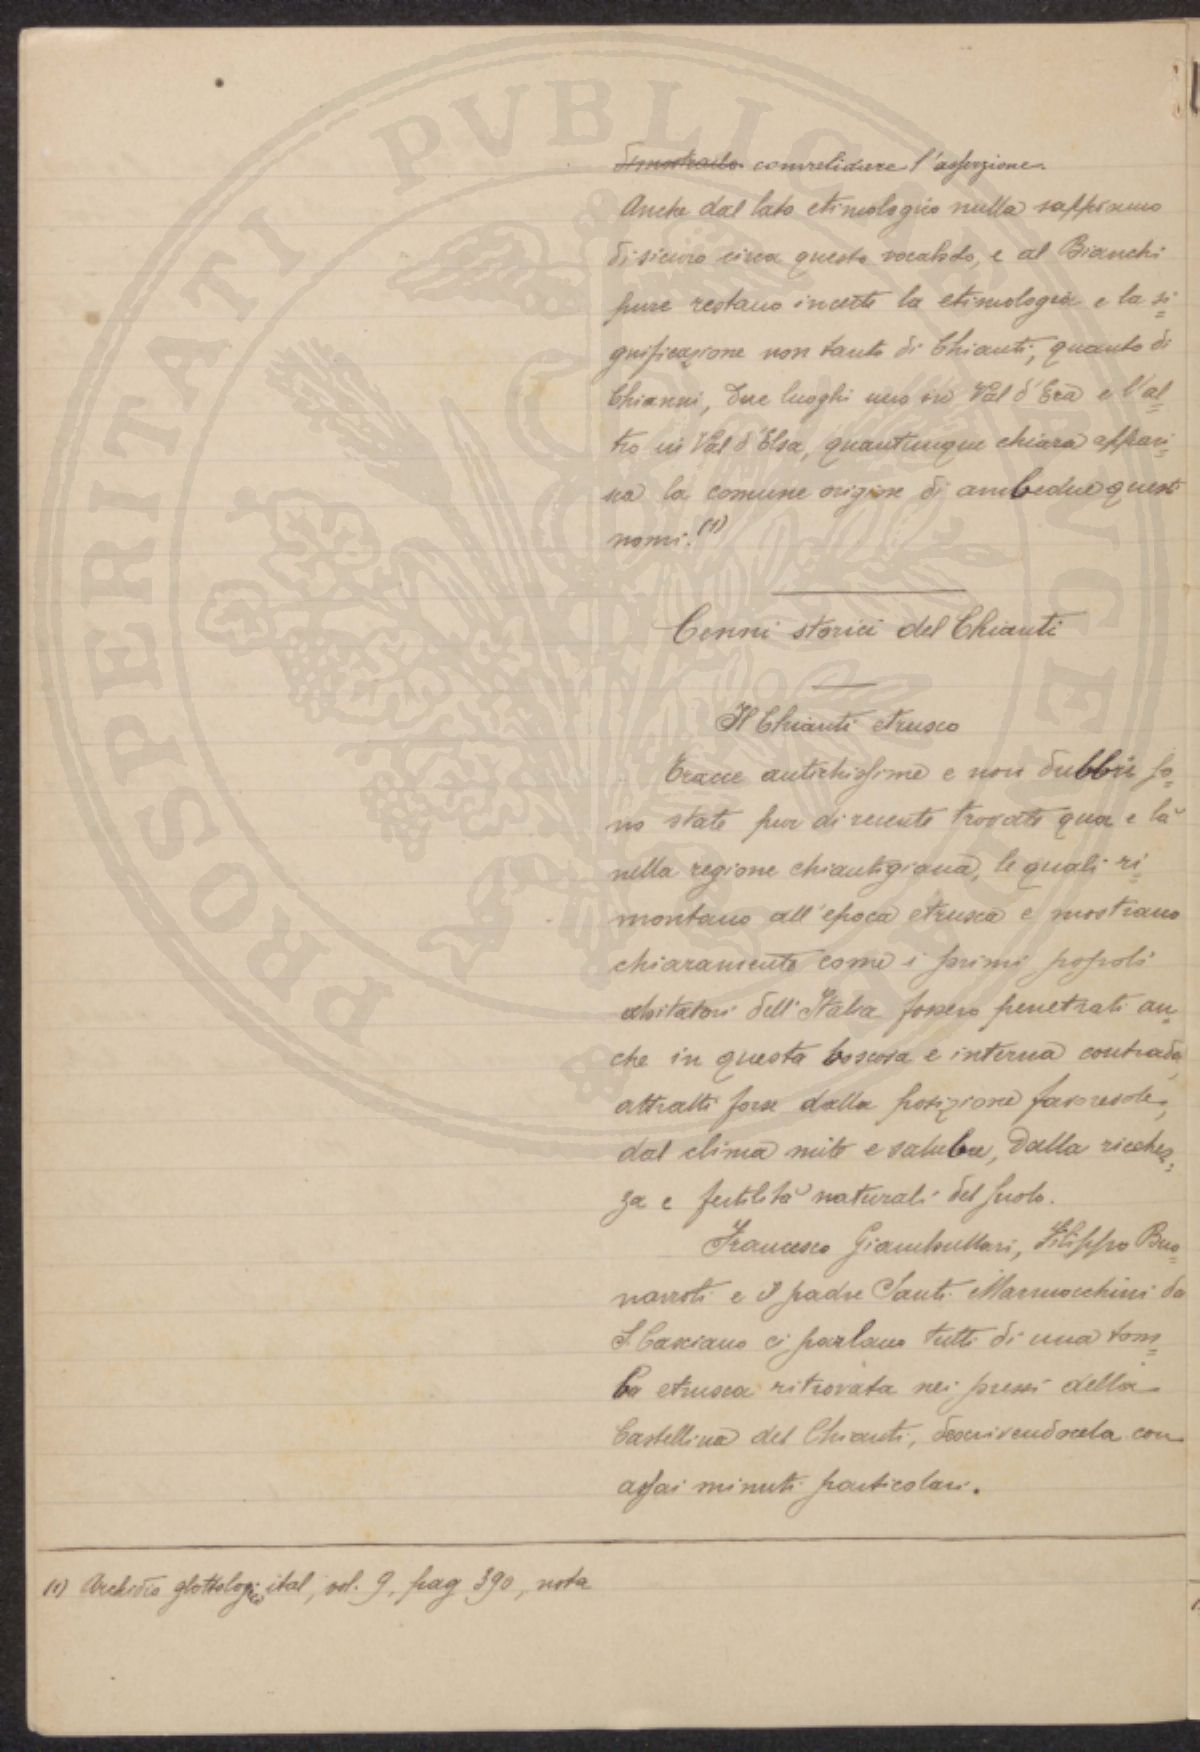 dimostrarlo convalidare l'asserzione.
Anche dal lato etimologico nulla sappiamo
di sicuro circa questo vocabolo, e al Bianchi
pure restano incerte la etimologia e la si=
gnificazione non tanto di Chianti, quanto di
Chianni, due luoghi uno in Val d'Era e l'al=
tro in Val d'Elsa, quantunque chiara appari=
sca la comune origine di ambedue questi
nomi. (1)
Cenni storici del Chianti
Il Chianti etrusco
Tracce antichissime e non dubbie so=
no state pur di recente trovate qua e là
nella regione chiantigiana, le quali ri=
montano all'epoca etrusca e mostrano
chiaramente come i primi popoli
abitatori dell'Italia fossero penetrati an=
che in questa boscosa e interna contrada,
attratti forse dalla posizione favorevole,
dal clima mite e salubre, dalla ricchez=
za e fertilità naturali del suolo.
Francesco Giambullari, Filippo Buo=
narroti e il padre Santi Marmocchini da
S. Casciano ci parlano tutti di una tom=
ba etrusca ritrovata nei pressi della
Castellina del Chianti, descrivendocela con
assai minuti particolari.
(1) Archivio glottologico ital, vol. 9, pag 390, nota
PROSPERITATI PVBLICAE AVGENDAE